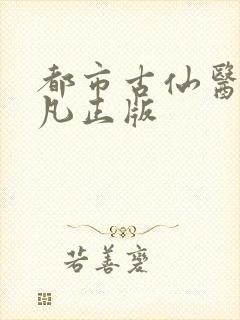 都市古仙醫
凡正版
若善